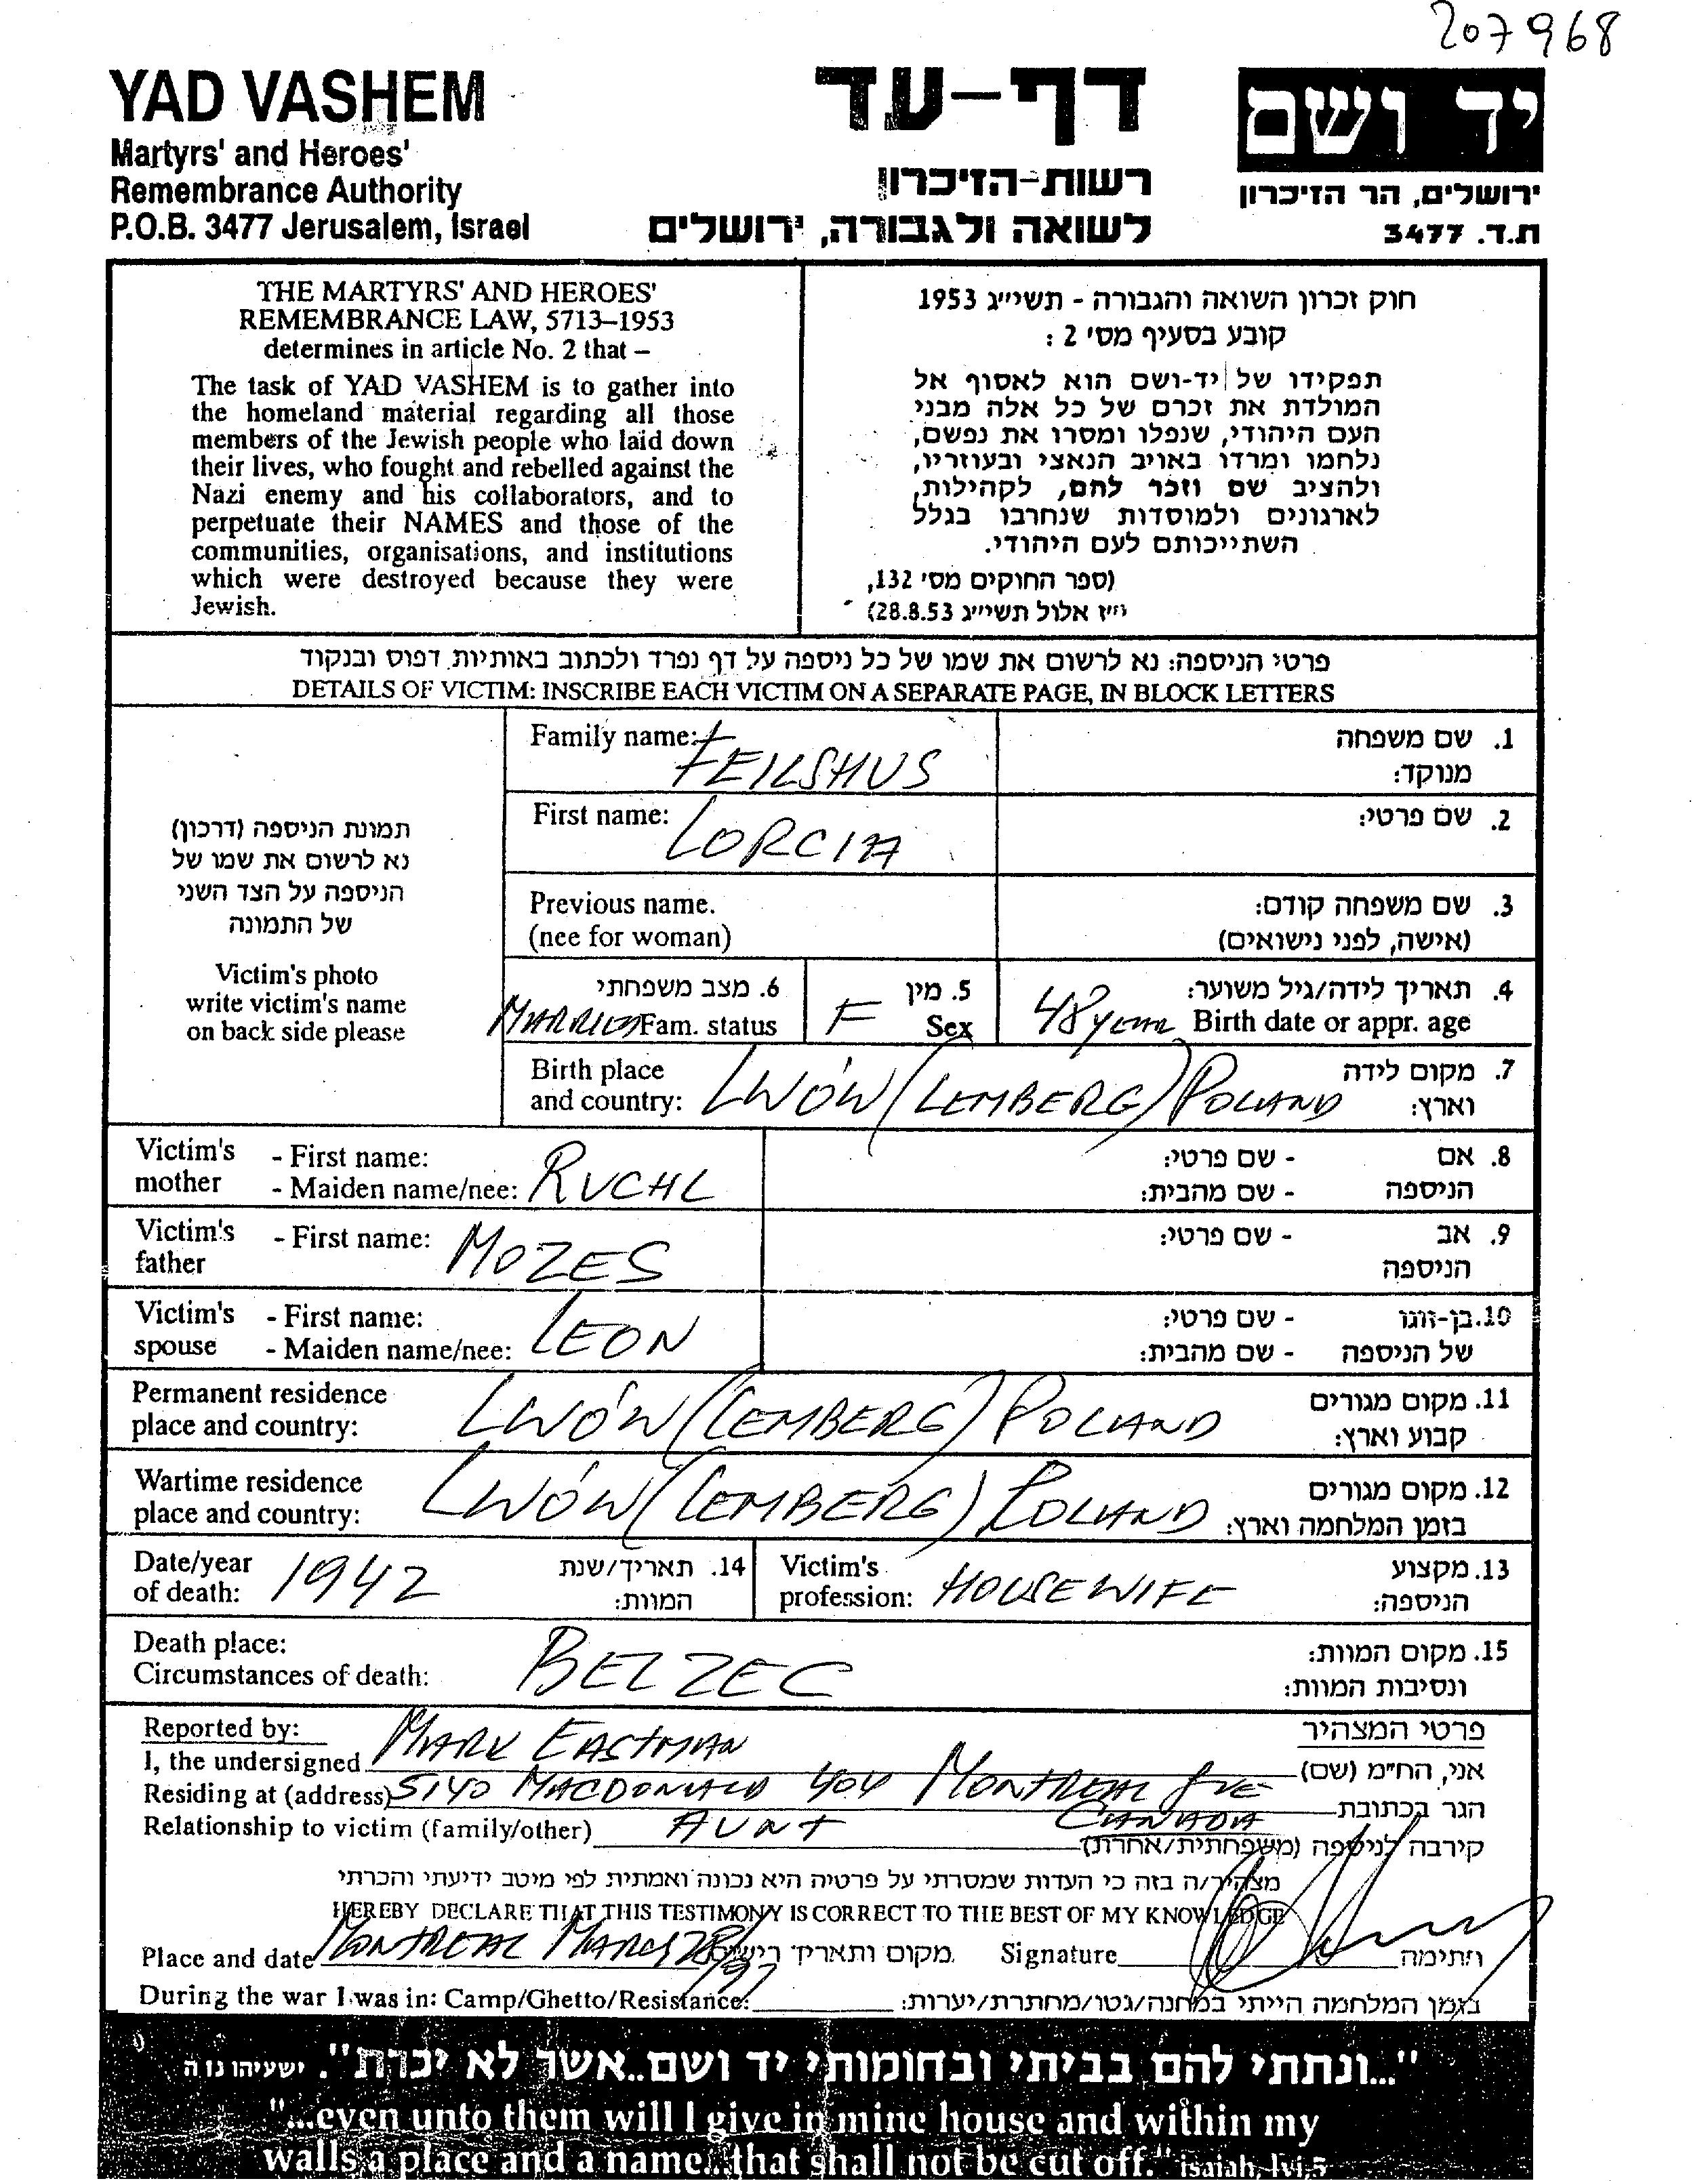 207968
YAD VASHEM
Martyrs' and Heroes'
Remembrance Authority
P.O.B. 3477 Jerusalem, Israel
דף-עד
רשות-הזיכרון
לשואה ולגבורה, ירושלים
יד ושם
ירושלים, הר הזיכרון
ת.ד. 3477
THE MARTYRS' AND HEROES'
REMEMBRANCE LAW, 5713–1953
determines in article No. 2 that –
The task of YAD VASHEM is to gather into
the homeland material regarding all those
members of the Jewish people who laid down
their lives, who fought and rebelled against the
Nazi enemy and his collaborators, and to
perpetuate their NAMES and those of the
communities, organisations, and institutions
which were destroyed because they were
Jewish.
חוק זכרון השואה והגבורה - תשי״ג 1953
קובע בסעיף מס' 2 :
תפקידו של יד-ושם הוא לאסוף אל
המולדת את זכרם של כל אלה מבני
העם היהודי, שנפלו ומסרו את נפשם,
נלחמו ומרדו באויב הנאצי ובעוזריו,
ולהציב שם וזכר להם, לקהילות,
לארגונים ולמוסדות שנחרבו בגלל
השתייכותם לעם היהודי.
(ספר החוקים מס' 132,
י״ז אלול תשי״ג 28.8.53)
פרטי הניספה: נא לרשום את שמו של כל ניספה על דף נפרד ולכתוב באותיות דפוס ובנקוד
DETAILS OF VICTIM: INSCRIBE EACH VICTIM ON A SEPARATE PAGE, IN BLOCK LETTERS
תמונת הניספה (דרכון)
נא לרשום את שמו של
הניספה על הצד השני
של התמונה
Victim's photo
write victim's name
on back side please
Family name: FEILSHUS 1. שם משפחה
מנוקד:
First name: LORCIA 2. שם פרטי:
Previous name. 3. שם משפחה קודם:
(nee for woman) (אישה, לפני נישואים)
6. מצב משפחתי 5. מין 4. תאריך לידה/גיל משוער:
MARRIED Fam. status F Sex 48 years Birth date or appr. age
Birth place 7. מקום לידה
and country: LWÓW (LEMBERG) POLAND וארץ:
Victim's - First name: - שם פרטי: 8. אם
mother - Maiden name/nee: RUCHL - שם מהבית: הניספה
Victim's - First name: MOZES - שם פרטי: 9. אב
father הניספה
Victim's - First name: - שם פרטי: 10. בן-זוגו
spouse - Maiden name/nee: LEON - שם מהבית: של הניספה
Permanent residence 11. מקום מגורים
place and country: LWÓW (LEMBERG) POLAND קבוע וארץ:
Wartime residence 12. מקום מגורים
place and country: LWÓW (LEMBERG) POLAND בזמן המלחמה וארץ:
Date/year 14. תאריך/שנת Victim's 13. מקצוע
of death: 1942 המוות: profession: HOUSEWIFE הניספה:
Death place: 15. מקום המוות:
Circumstances of death: BELZEC ונסיבות המוות:
Reported by: פרטי המצהיר
I, the undersigned MARK EASTMAN אני, הח״מ (שם)
Residing at (address) 5140 MACDONALD 404 MONTREAL הגר בכתובת
CANADA
Relationship to victim (family/other) AUNT קירבה לניספה (משפחתית/אחרת)
מצהיר/ה בזה כי העדות שמסרתי על פרטיה היא נכונה ואמתית לפי מיטב ידיעתי והכרתי
HEREBY DECLARE THAT THIS TESTIMONY IS CORRECT TO THE BEST OF MY KNOWLEDGE
Place and date MONTREAL MARCH 28/97 מקום ותאריך Signature חתימה
During the war I was in: Camp/Ghetto/Resistance: בזמן המלחמה הייתי במחנה/גטו/מחתרת/יערות:
"...ונתתי להם בביתי ובחומותי יד ושם..אשר לא יכרת". ישעיהו נו ה
"...even unto them will I give in mine house and within my
walls a place and a name...that shall not be cut off." isaiah, lvi,5